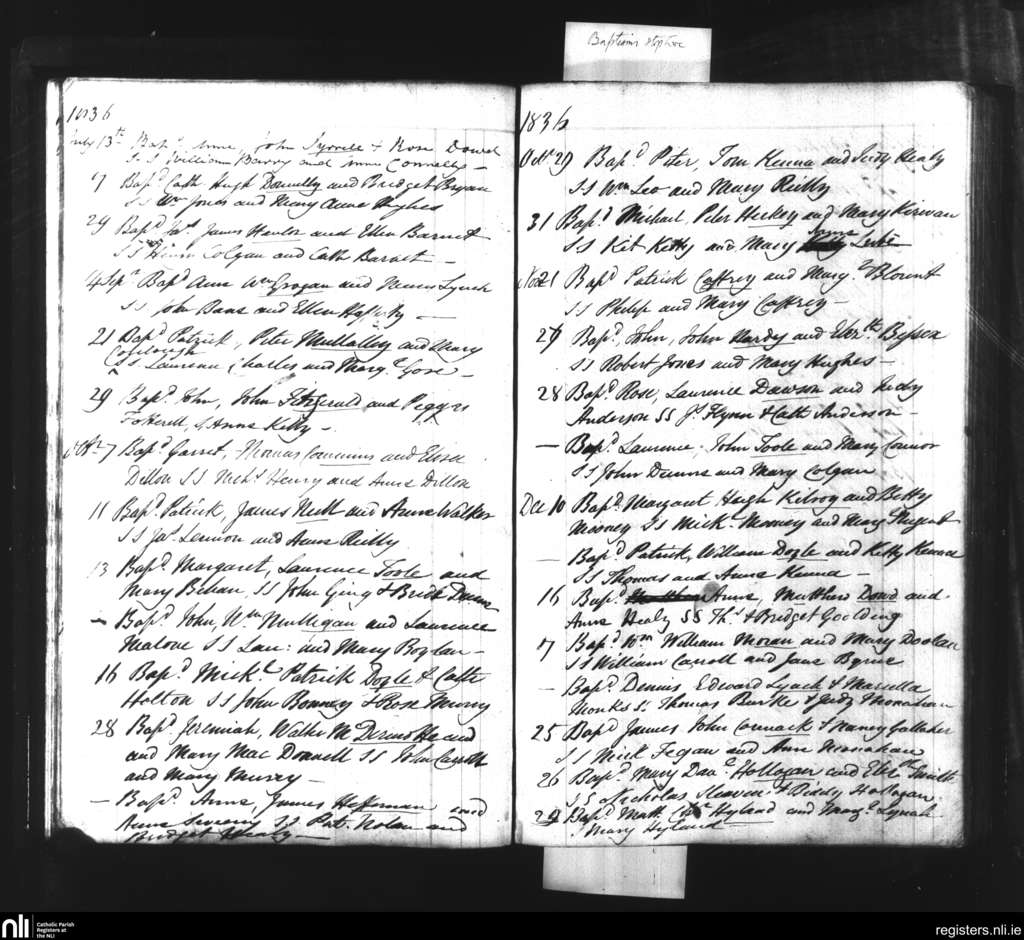 Baptisms
1836
July 13th Bapd Anne, John and Rose Dowd
SS William Barry and Anne Connolly —
7 Bapd Cath Hugh Donnelly and Bridget Bryan
SS Wm Jones and Mary Anne Hughes
29 Bapd Jas James Hanlon and Ellen Barnet
SS Henry Colgan and Cath Barnet —
4 Sepr Bapd Ann Wm Grogan and Lynch
SS John Bans and Ellen —
21 Bapd Patrick, Peter Mullally and Mary
SS Laurence Charles and Marg.t Gore —
29 Bapd John, John Fitzgerald and Peggy
Fotterell, S Anne Kelly —
Octr 7 Bapd Garret, Thomas Cummins and Eliza
Dillon SS Michl Henry and Anne Dillon
11 Bapd Patrick, James Nett and Anne Walker
SS Jas Lennon and Anne Reilly
13 Bapd Margaret, Laurence Toole and
Mary Behan, SS John Ging & Bridt Dunn
— Bapd John, Wm Mulligan and Laurence
Malone SS Lau: and Mary Boylan —
16 Bapd Mickl Patrick Doyle & Cath
Holton SS John Bonney & Rose Murry
28 Bapd Jeremiah, Walter McDermott and
and Mary Mac Donnell SS John Carroll
and Mary Murry —
— Bapd Anne, James Heffernan and
Anne SS Pat. Nolan and
Bridget Healy —
1836
Octr 29 Bapd Peter, Tom Kenna and Judy Healy
SS Wm Leo and Mary Reilly
31 Bapd Michael Peter Hickey and Mary Kirwan
SS Kit Kelly and Mary Anne Luke
Nov 21 Bapd Patrick Caffrey and Margt Blount
SS Philip and Mary Caffrey —
27 Bapd John, John Hardy and Elizth
SS Robert Jones and Mary Hughes —
28 Bapd Rose, Laurence Dawson and Judy
Anderson SS Js Flynn & Cath Anderson —
— Bapd Laurence, John Toole and Mary Connor
SS John Dunne and Mary Colgan
Dec 10 Bapd Margaret Hugh Kilroy and Betty
Mooney SS Mick Mooney and Mary Nugent
— Bapd Patrick, William Doyle and Kitty Kenna
SS Thomas and Anne Kenna —
16 Bapd Anne, Matthew Dowd and
Anne Healy SS Ths & Bridget Goolding
17 Bapd Wm William Moran and Mary Doolan
SS William Carroll and Jane Byrne
— Bapd Dennis Edward Lynch & Marcella
Monks S. Thomas Burke & Judy Monahan
25 Bapd James John Connack & Nancy Gallaher
SS Mick Fegan and Ann Monahan
26 Bapd Mary Dav Hollogan and Elizth Smith
SS Nicholas Sleaven & Biddy Hollogan
29 Bapd Matt Hyland and Margt Lynch
Mary Hyland —
nli
Catholic Parish
Registers at
the NLI
registers.nli.ie